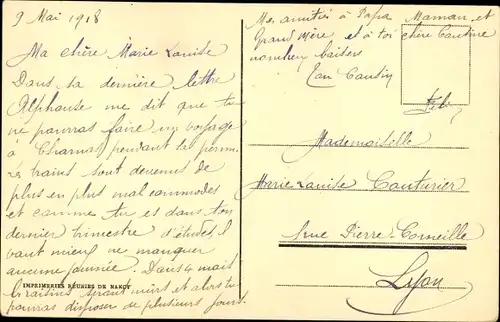 9 Mai 1918
Ma chère Marie Louise
Dans sa dernière lettre
Alphonse me dit que tu
ne pourras faire un voyage
à Charnas pendant la perm.
Les trains sont devenus de
plus en plus mal commodes
et comme tu es dans ton
dernier trimestre d'études il
vaut mieux ne manquer
aucune journée. Dans 4 mois
les raisins seront mûrs et alors tu
pourras disposer de plusieurs jours.
IMPRIMERIES REUNIES DE NANCY
Mes amitiés à Papa Maman et
Grand Mère et à toi chère Cousine
nombreux baisers
Ton Cousin
Mademoiselle
Marie Louise Couturier
Rue Pierre Corneille
Lyon